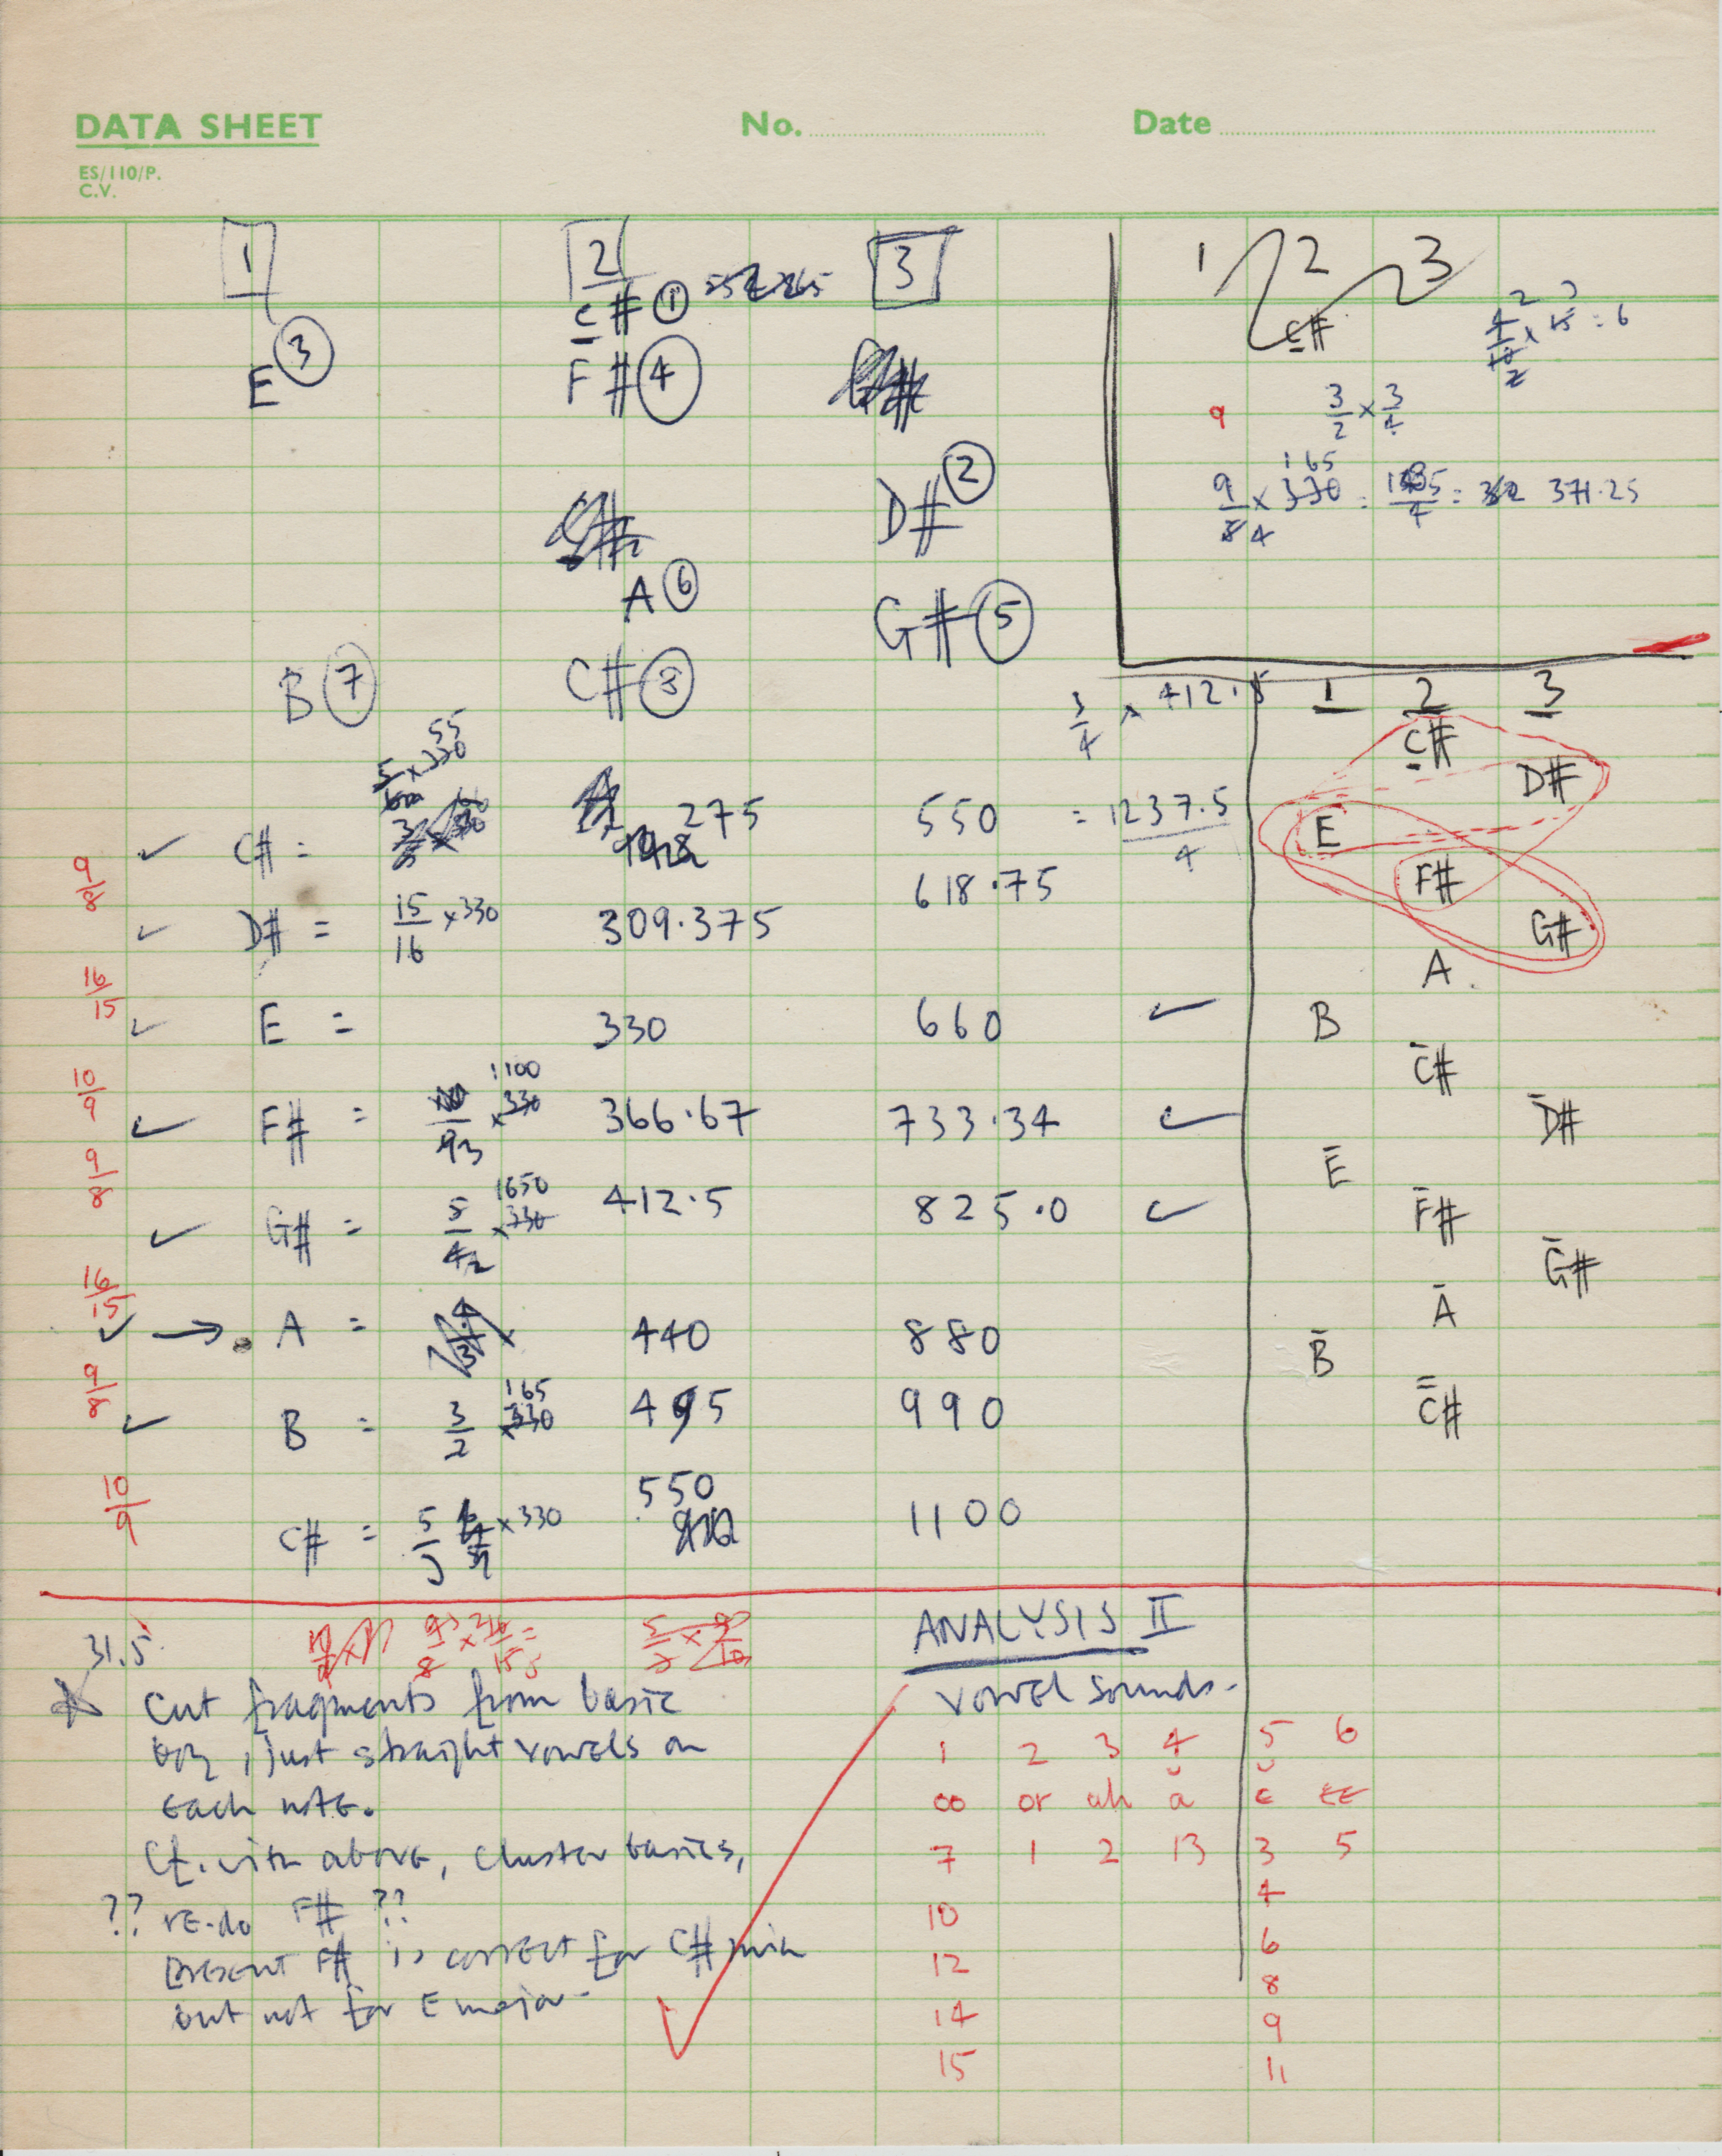 DATA SHEET No. Date
ES/110/P.
C.V.
1 2 3
C# 1
E 3 F# 4
D# 2
A 6
G# 5
B 7 C# 8
1 2 3
C#
4/10 × 15 = 6
9 3/2 × 3/4
9/8 × 330 = 1485/4 = 371.25
165
4
3/4 × 412.5
= 1237.5/4
5/6 × 330
55
C# = 275 550
9/8
D# = 15/16 × 330 309.375 618.75
16/15
E = 330 660
10/9
F# = 10/9 × 330 366.67 733.34
1100
3
9/8
G# = 5/4 × 330 412.5 825.0
1650
2
16/15
→ A = 440 880
9/8
B = 3/2 × 330 495 990
165
10/9
C# = 5/3 × 330 550 1100
1 2 3
C#
D#
E
F#
G#
A
B
C#
D#
E
F#
G#
A
B
C#
31.5
Cut fragments from basic
, just straight vowels on
each note.
Cf. with above, cluster basics,
?? re-do F# ??
present F# is correct for C# min
but not for E major.
ANALYSIS II
VOWEL sounds.
1 2 3 4 5 6
oo or ah a e EE
7 1 2 13 3 5
4
10
6
12
8
14 9
15 11